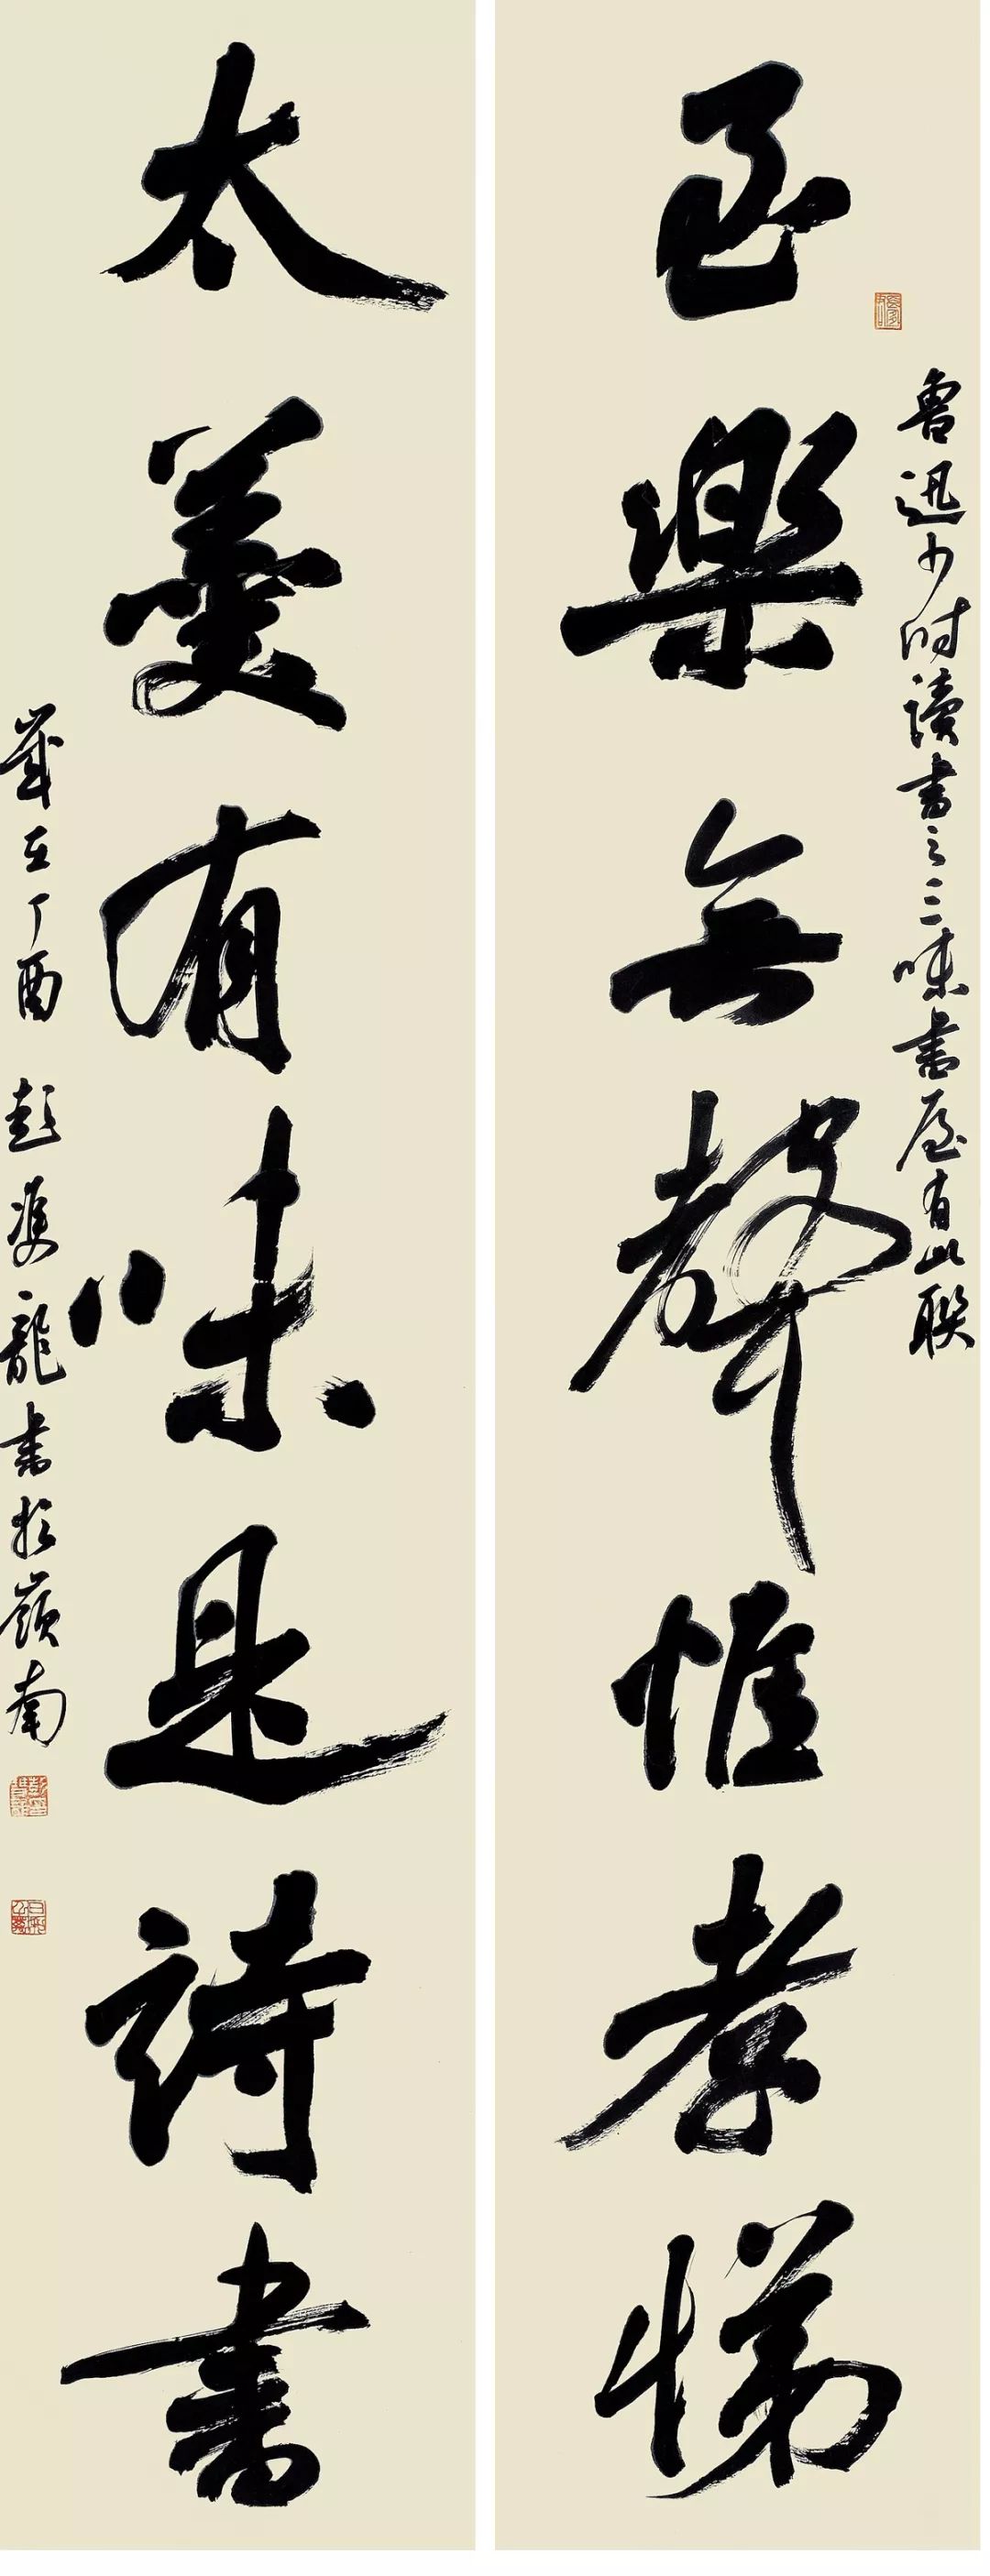 魯迅少时讀書之三味書屋有此聯
至樂無聲惟孝悌
太羹有味是詩書
歲在丁酉 彭雙龍書於嶺南